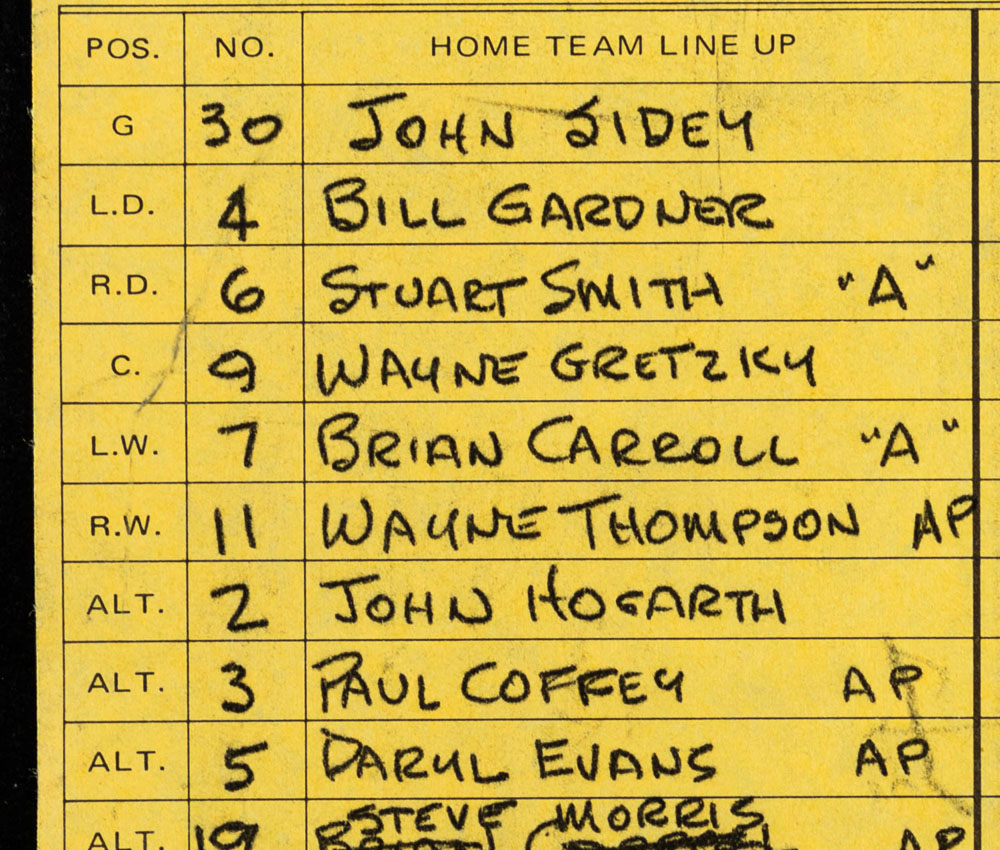 POS. NO. HOME TEAM LINE UP
G 30 JOHN SIDEY
L.D. 4 BILL GARDNER
R.D. 6 STUART SMITH "A"
C. 9 WAYNE GRETZKY
L.W. 7 BRIAN CARROLL "A"
R.W. 11 WAYNE THOMPSON AP
ALT. 2 JOHN HOGARTH
ALT. 3 PAUL COFFEY AP
ALT. 5 DARYL EVANS AP
STEVE MORRIS
ALT. 19 AP